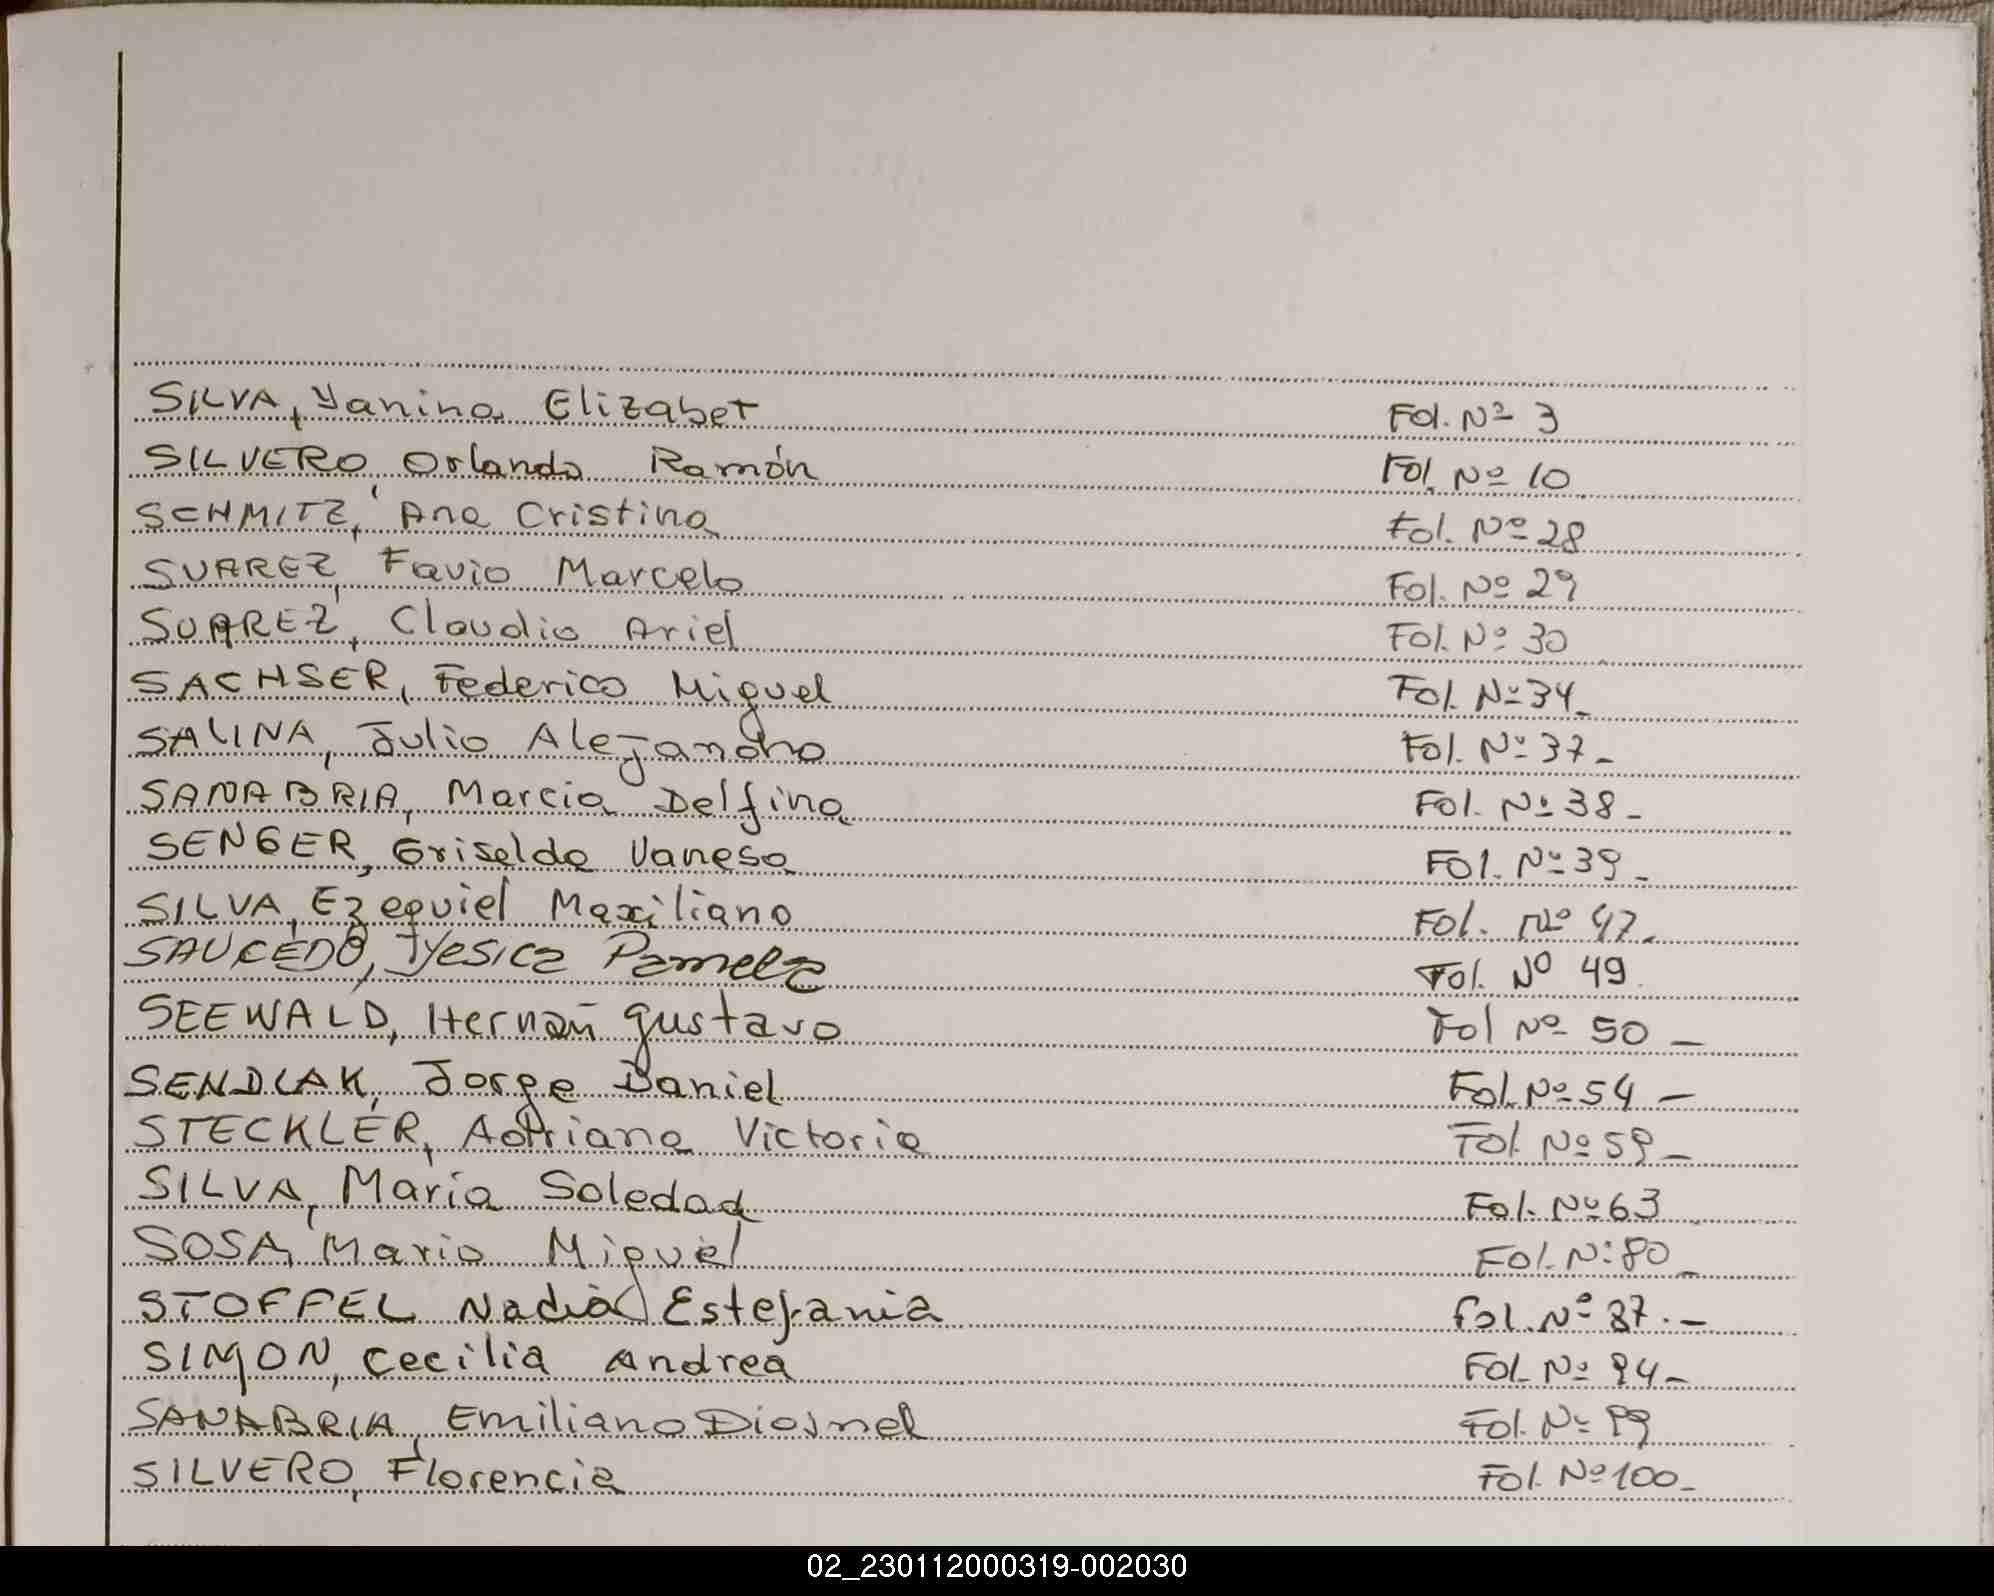 SILVA, Yanina Elizabet Fol. Nº 3
SILVERO, Orlando Ramón Fol. Nº 10
SCHMITZ, Ana Cristina Fol. Nº 28
SUAREZ, Favio Marcelo Fol. Nº 29
SUAREZ, Claudio Ariel Fol. Nº 30
SACHSER, Federico Miguel Fol. Nº 34_
SALINA, Julio Alejandro Fol. Nº 37_
SANABRIA, Marcia Delfina Fol. Nº 38_
SENGER, Griselda Vanesa Fol. Nº 39_
SILVA, Ezequiel Maxiliano Fol. Nº 47_
SAUCEDO, Jyesica Pamela Fol. Nº 49
SEEWALD, Hernán Gustavo Fol Nº 50 _
SENDLAK, Jorge Daniel Fol. Nº 54 _
STECKLER, Adriana Victoria Fol. Nº 59_
SILVA, María Soledad Fol. Nº 63
SOSA, Mario Miguel Fol. Nº 80_
STOFFEL Nadia Estefania Fol. Nº 87._
SIMON, Cecilia Andrea Fol. Nº 94_
SANABRIA, Emiliano Diosnel Fol. Nº 99
SILVERO, Florencia Fol. Nº 100_
02_230112000319-002030